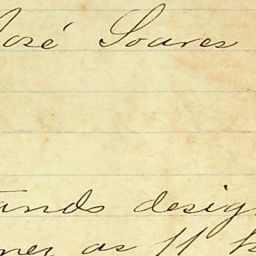 José Soares
ands desig
ner as 11